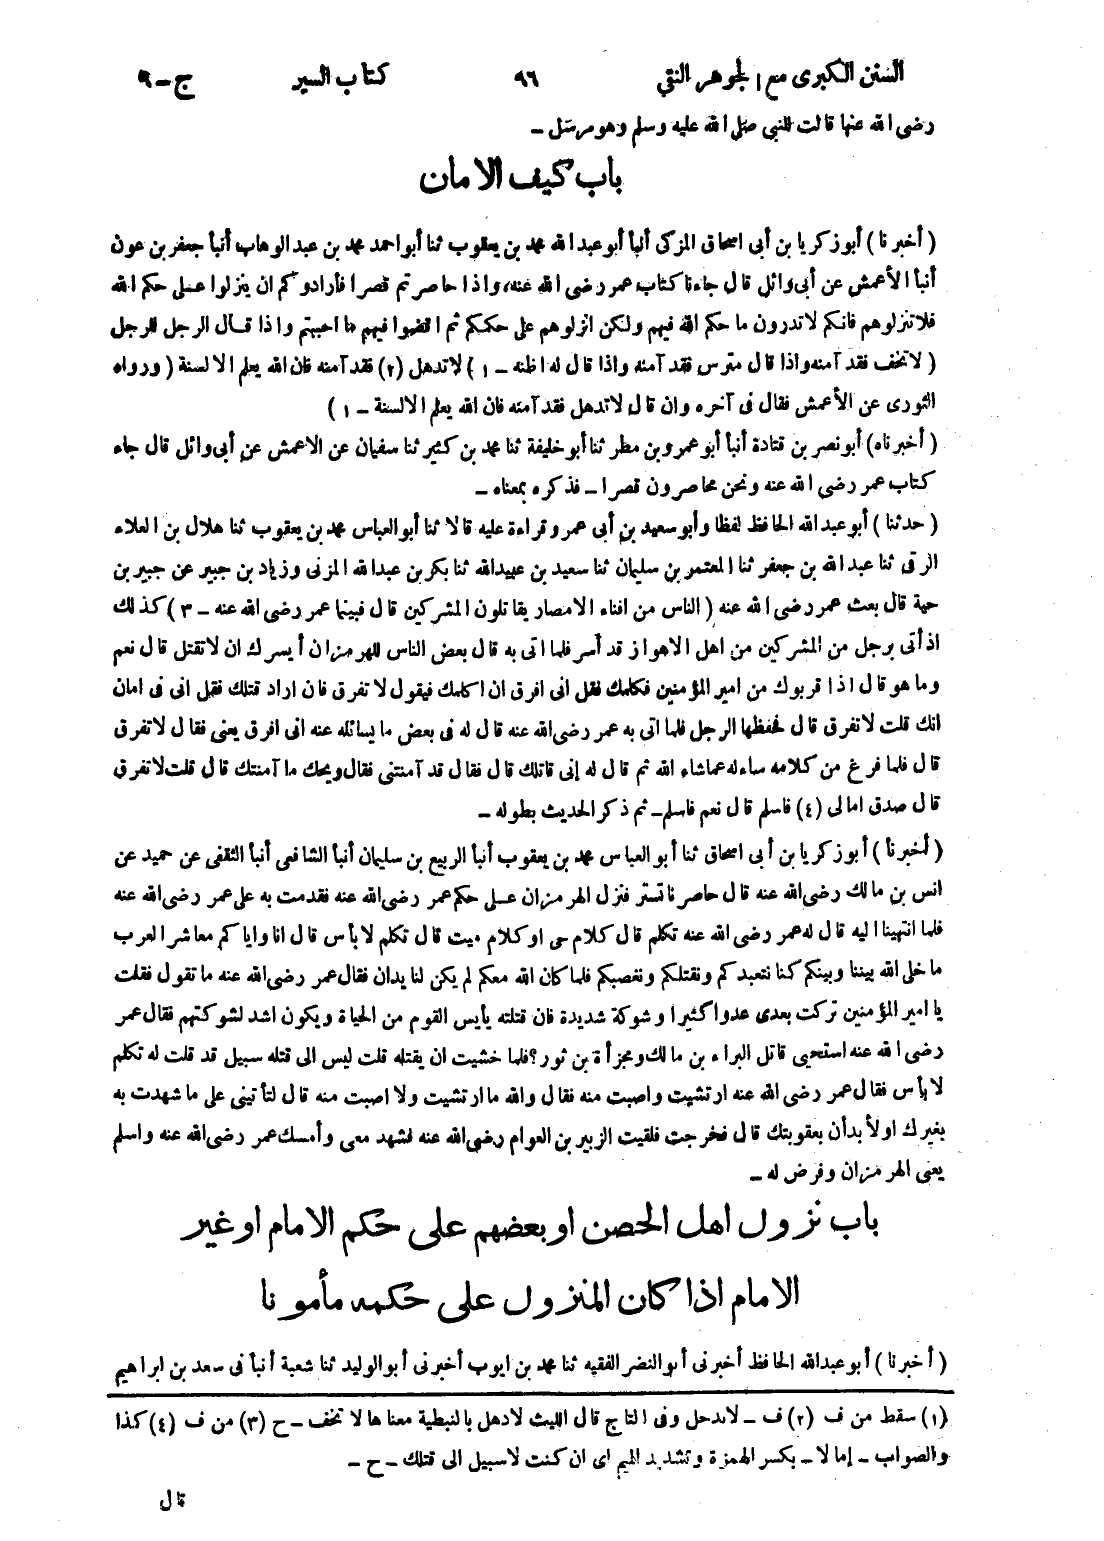 السنن الكبرى مع الجوهر النقي ٩٦ كتاب السير ج - ٩
رضى الله عنها قالت للنبي صلى الله عليه وسلم وهو مرسل -
باب كيف الامان
( أخبرنا ) أبو زكريا بن أبى اسحاق المزكى أنبأ أبو عبد الله محمد بن يعقوب ثنا أبو احمد محمد بن عبد الوهاب أنبأ جعفر بن عون
أنبأ الأعمش عن أبى وائل قال جاءنا كتاب عمر رضى الله عنه، واذا حاصرتم قصرا فأرادوكم ان ينزلوا على حكم الله
فلا تنزلوهم فانكم لا تدرون ما حكم الله فيهم ولكن انزلوهم على حكمكم ثم اقضوا فيهم ما احببتم واذا قال الرجل للرجل
( لا تخف فقد آمنه واذا قال مترس فقد آمنه واذا قال له اظنه - ١ ) لا تدهل (٢) فقد آمنه فان الله يعلم الالسنة ( ورواه
الثورى عن الأعمش فقال فى آخره وان قال لا تدهل فقد آمنه فان الله يعلم الالسنة - ١ )
( أخبرناه ) أبو نصر بن قتادة أنبأ أبو عمرو بن مطر ثنا أبو خليفة ثنا محمد بن كثير ثنا سفيان عن الاعمش عن أبى وائل قال جاء
كتاب عمر رضى الله عنه ونحن محاصرون قصرا - فذكره بمعناه -
( حدثنا ) أبو عبد الله الحافظ لفظا وأبو سعيد بن أبى عمرو قراءة عليه قالا ثنا أبو العباس محمد بن يعقوب ثنا هلال بن العلاء
الرقى ثنا عبد الله بن جعفر ثنا المعتمر بن سليمان ثنا سعيد بن عبيد الله ثنا بكر بن عبد الله المزنى وزياد بن جبير عن جبير بن
حية قال بعث عمر رضى الله عنه ( الناس من افناء الامصار يقاتلون المشركين قال فبينما عمر رضى الله عنه - ٣ ) كذلك
اذ أتى برجل من المشركين من اهل الاهواز قد أسر فلما اتى به قال بعض الناس للهرمزان أيسرك ان لا تقتل قال نعم
وما هو قال اذا قربوك من امير المؤمنين فكلمك فقل انى افرق ان اكلمك فيقول لا تفرق فان اراد قتلك فقل انى فى امان
انك قلت لا تفرق قال فحفظها الرجل فلما اتى به عمر رضى الله عنه قال له فى بعض ما يسائله عنه انى افرق يعنى فقال لا تفرق
قال فلما فرغ من كلامه ساءله عما شاء الله ثم قال له إنى قاتلك قال فقال قد آمنتنى فقال ويحك ما آمنتك قال قلت لا تفرق
قال صدق امالى (٤) فاسلم قال نعم فاسلم - ثم ذكر الحديث بطوله -
( أخبرنا ) أبو زكريا بن أبى اسحاق ثنا أبو العباس محمد بن يعقوب أنبأ الربيع بن سليمان أنبأ الشافعى أنبأ الثقفى عن حميد عن
انس بن مالك رضى الله عنه قال حاصرنا تستر فنزل الهرمزان على حكم عمر رضى الله عنه فقدمت به على عمر رضى الله عنه
فلما انتهينا اليه قال له عمر رضى الله عنه تكلم قال كلام حى او كلام ميت قال تكلم لا بأس قال انا واياكم معاشر العرب
ما خلى الله بيننا وبينكم كنا نتعبدكم ونقتلكم ونغصبكم فلما كان الله معكم لم يكن لنا يدان فقال عمر رضى الله عنه ما تقول فقلت
يا امير المؤمنين تركت بعدى عدوا كثيرا وشوكة شديدة فان قتلته يأيس القوم من الحياة ويكون اشد لشوكتهم فقال عمر
رضى الله عنه استحيى قاتل البراء بن مالك ومجزأة بن ثور؟ فلما خشيت ان يقتله قلت ليس الى قتله سبيل قد قلت له تكلم
لا بأس فقال عمر رضى الله عنه ارتشيت واصبت منه فقال والله ما ارتشيت ولا اصبت منه قال لتأتينى على ما شهدت به
بغيرك اولأ بدأن بعقوبتك قال فخرجت فلقيت الزبير بن العوام رضى الله عنه فشهد معى وأمسك عمر رضى الله عنه واسلم
يعنى الهرمزان وفرض له -
باب نزول اهل الحصن او بعضهم على حكم الامام او غير
الامام اذا كان المنزول على حكمه مأمونا
( أخبرنا ) أبو عبد الله الحافظ أخبرنى أبو النضر الفقيه ثنا محمد بن ايوب أخبرنى أبو الوليد ثنا شعبة أنبأ فى سعد بن ابراهيم
(١) سقط من ف (٢) ف - لا تدحل وفى التاج قال الليث لا دهل بالنبطية معناها لا تخف - ح (٣) من ف (٤) كذا
والصواب - إما لا - بكسر الهمزة وتشديد الميم اى ان كنت لا سبيل الى قتلك - ح -
قال